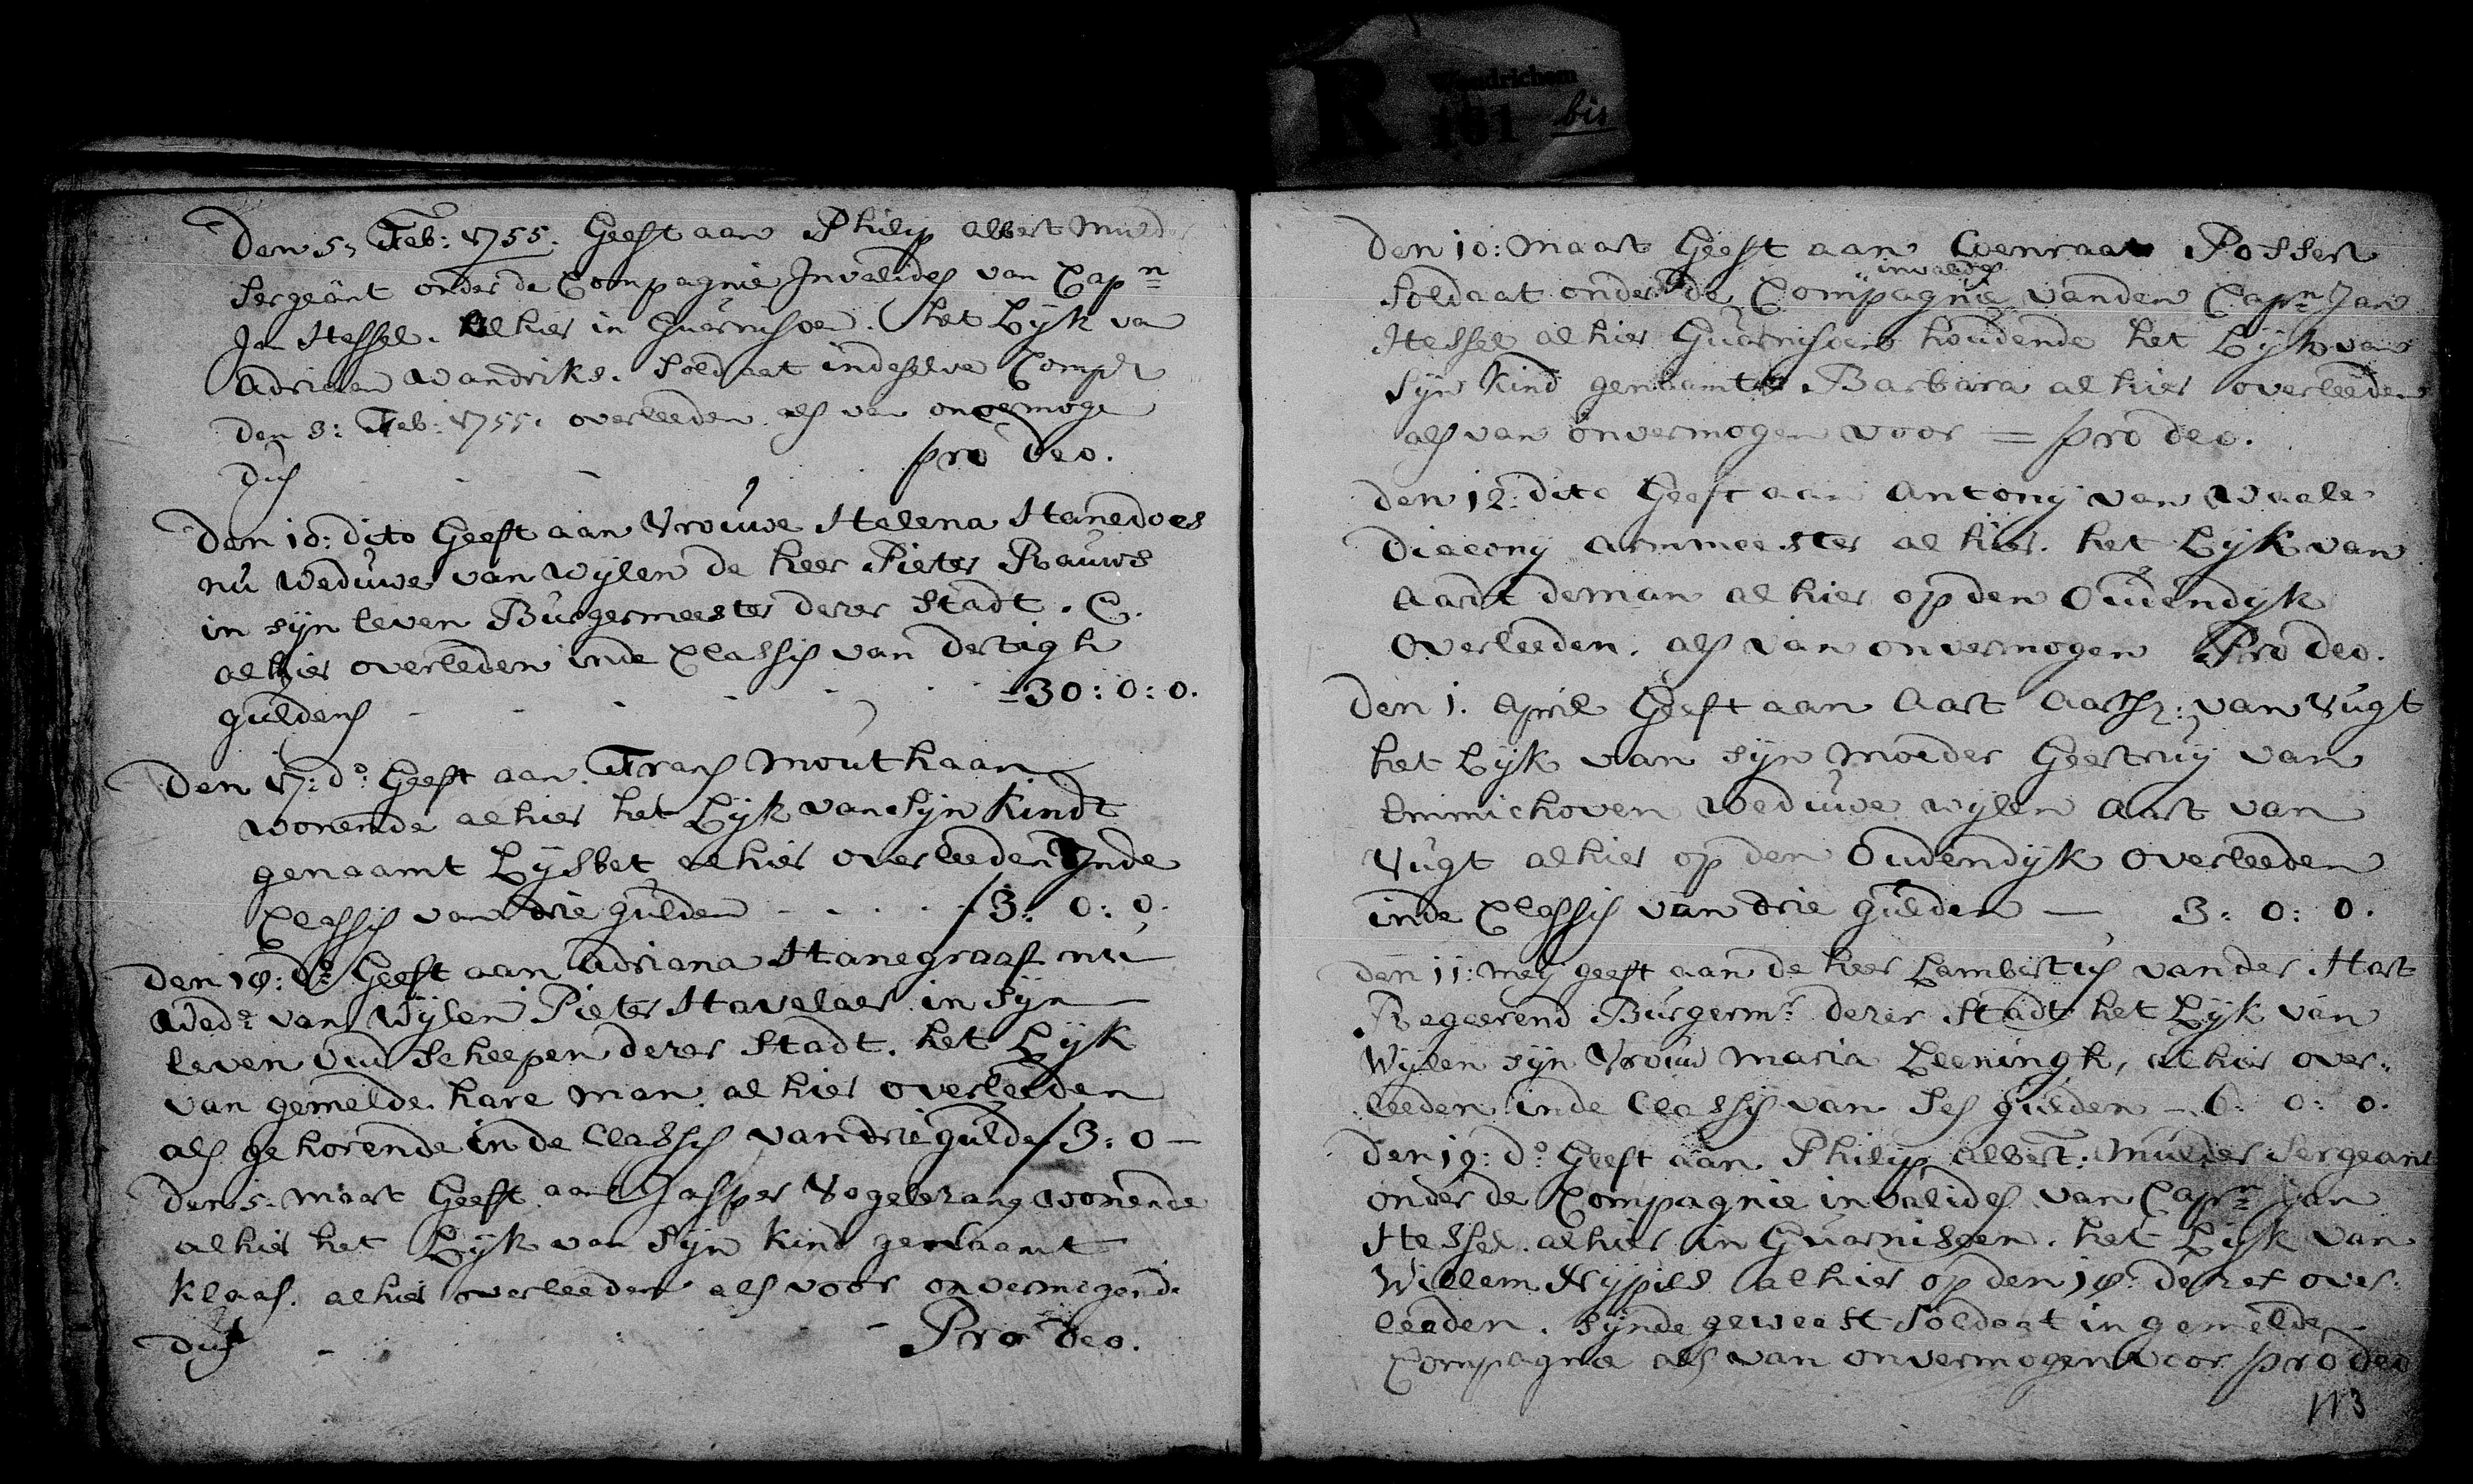 R Woudrichem
101 bis
Den 5: Feb: 1755. Geeft aan Philip Albert Mulder
Sergeänt onder de Compagnie Invalides van Capn
Jan Hessel. Alhier in Guarnisoen. het Lÿk van
Adriaan Wandriks. Soldaat indeselve Compe
den 3: Feb: 1755. overleeden als van onvermoge
dus - - - pro deo.
Den 10: dito Geeft aan Vrouwe Helena Hanedoes
nu Weduwe van Wÿlen de heer Pieter Rauws
in sÿn leven Burgermeester dezer Stadt. C.
alhier overleden inde Classis van dertigh
guldens - - - - - =30:0:0.
Den 17: do: Geeft aan Frans Mouthaan
wonende alhier het Lÿk van Sÿn Kindt
genaamt Lÿsbet alhier overleeden Inde
Classis van drie gulden - - - - f3: 0: 0.
den 18: do Geeft aan Adriana Hanegraaf nu
Wede van Wÿlen Pieter Havelaer in Sÿn
leven Oud Scheepen dezer Stadt. het Lÿk
van gemelde hare man alhier overleeden
als gehorende in de Classis van drie gulde f3:0 -
Den 5. Maart Geeft aan Jasper Vogelezang wonende
alhier het Lÿk van Sÿn Kind genaamt
Klaas. alhier overleeden als voor onvermogende
dus - - - Pro Deo.
Den 10: Maart Geeft aan Coenraat Possert
invalides
Soldaat onder de Compagnie vanden Capn Jan
Hessel alhier Guarnisoen houdende het Lÿk van
Sÿn Kind genaamt Barbara alhier overleeden
als van onvermogen voor = pro deo.
Den 12: dito Geeft aan Antonÿ van Waale
Diaconÿ Armmeester alhier. het Lÿk van
Aardt deman alhier op den Oudendÿk
Overleeden. als van onvermogen Pro deo.
Den 1. April Geeft aan Aart Aartsz: van Vugt
het Lÿk van sÿn Moeder Geertruÿ van
Emmichoven Weduwe wÿlen Aart van
Vugt alhier op den Oudendÿk Overleeden
inde Classis van drie gulden — 3: 0: 0.
Den 11: Meÿ geeft aan de heer Lambertus vander Hart
Regeerend Burgermr dezer Stadt het Lÿk van
Wÿlen sÿn Vrouw Maria Leeningh, alhier over:
leeden inde Classis van Ses gulden - 6: 0: 0.
Den 19: do Geeft aan Philip Albert: Mulder Sergeant
onder de Compagnie invalides van Capn Jan
Hessel. alhier in Guarnisoen. het Lÿk van
Willem alhier op den 18: dezer over:
leeden. Sÿnde geweest Soldaat in gemelde
Compagnie als van onvermogen voor pro deo
113